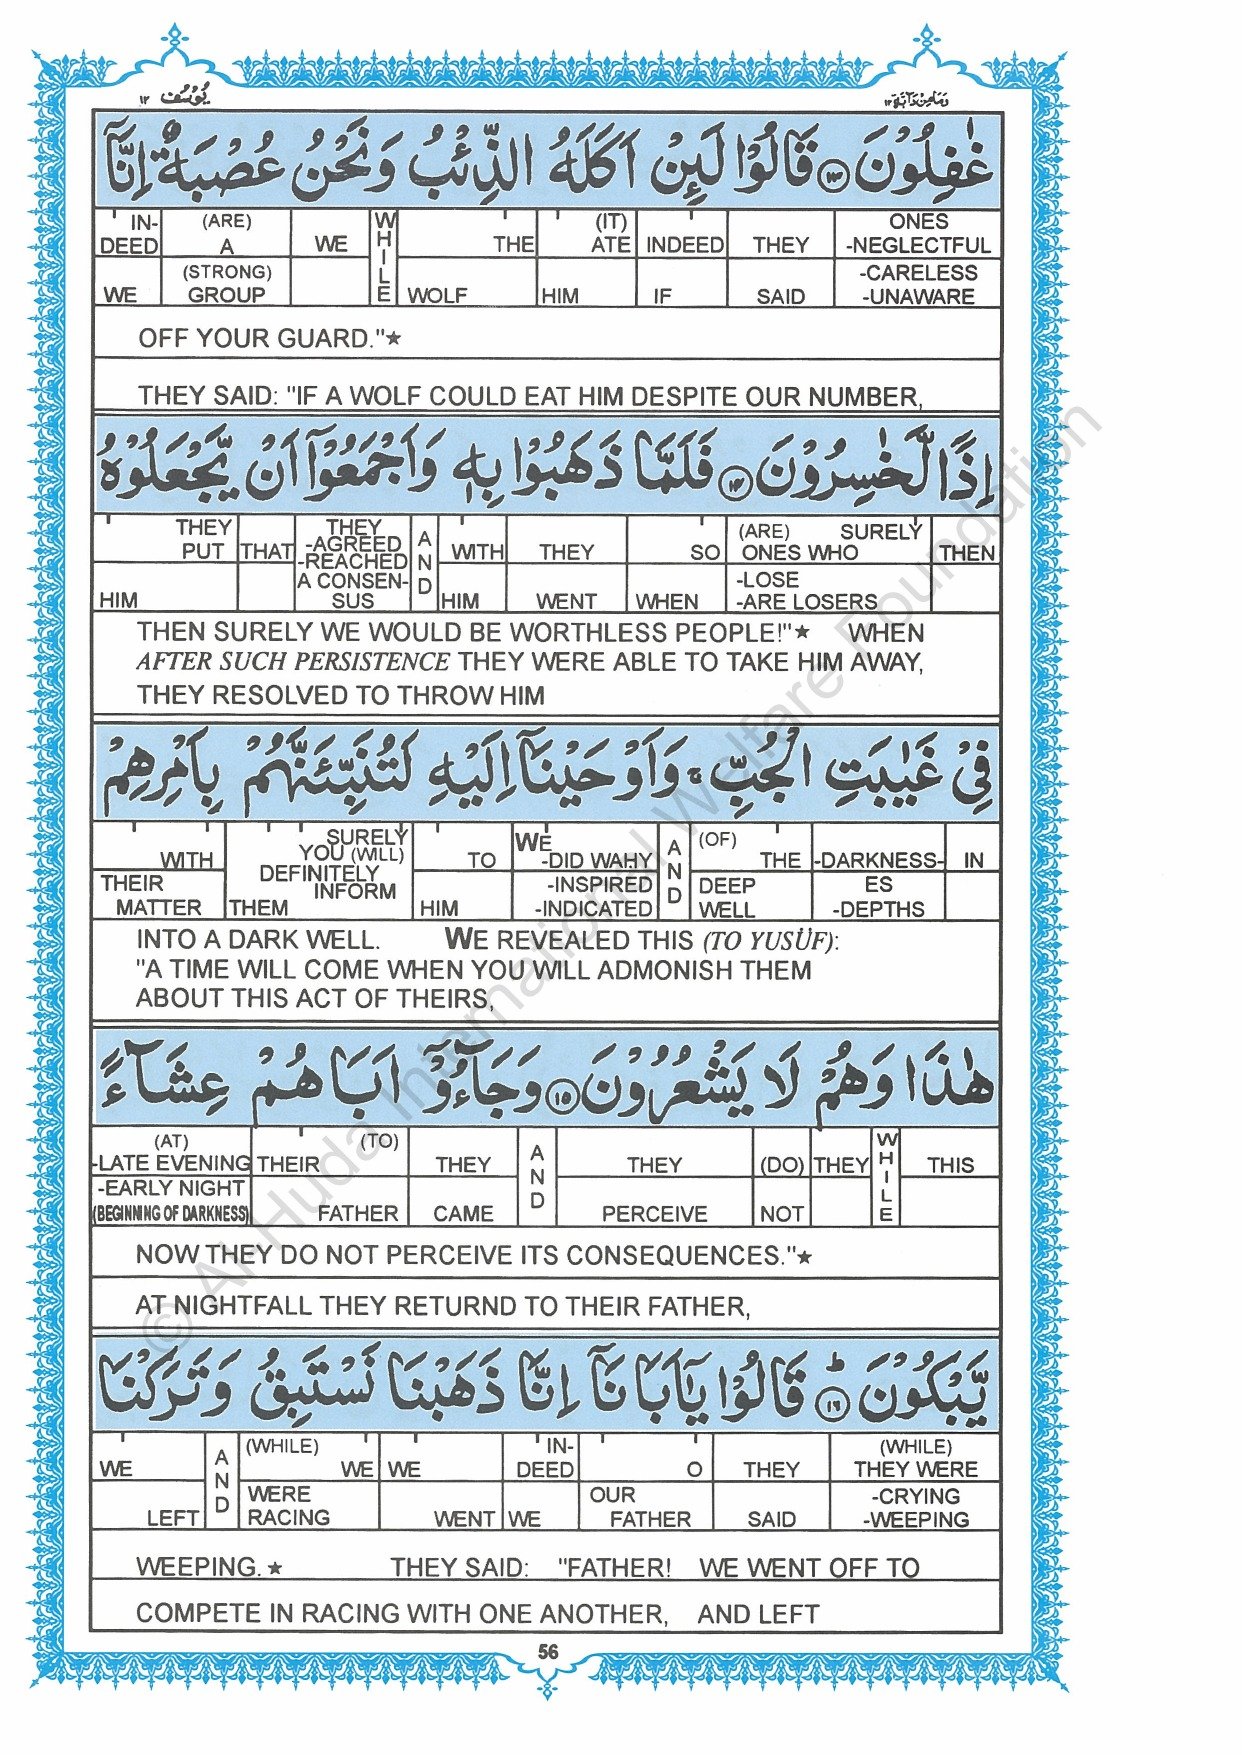 يُوْسُف ١٢
وَمَا مِنْ دَآبَّة ١٢
غٰفِلُوْنَ ﴿١٣﴾ قَالُوْا لَىِٕنْ اَكَلَهُ الذِّئْبُ وَنَحْنُ عُصْبَةٌ اِنَّاۤ
IN-DEED WE | (ARE) A (STRONG) GROUP | WE | WHILE | THE WOLF | (IT) ATE HIM | INDEED IF | THEY SAID | ONES -NEGLECTFUL -CARELESS -UNAWARE
OFF YOUR GUARD."★
THEY SAID: "IF A WOLF COULD EAT HIM DESPITE OUR NUMBER,
اِذًا لَّخٰسِرُوْنَ ﴿١٤﴾ فَلَمَّا ذَهَبُوْا بِهٖ وَاَجْمَعُوْۤا اَنْ يَّجْعَلُوْهُ
THEY PUT HIM | THAT | THEY -AGREED -REACHED A CONSEN-SUS | AND | WITH HIM | THEY WENT | SO WHEN | (ARE) SURELY ONES WHO -LOSE -ARE LOSERS | THEN
THEN SURELY WE WOULD BE WORTHLESS PEOPLE!"★ WHEN
AFTER SUCH PERSISTENCE THEY WERE ABLE TO TAKE HIM AWAY,
THEY RESOLVED TO THROW HIM
فِيْ غَيٰبَتِ الْجُبِّ ۚ وَاَوْحَيْنَاۤ اِلَيْهِ لَتُنَبِّئَنَّهُمْ بِاَمْرِهِمْ
WITH THEIR MATTER | SURELY YOU (WILL) DEFINITELY INFORM THEM | TO HIM | WE -DID WAHY -INSPIRED -INDICATED | AND | (OF) THE DEEP WELL | -DARKNESS-ES -DEPTHS | IN
INTO A DARK WELL. WE REVEALED THIS (TO YUSÜF):
"A TIME WILL COME WHEN YOU WILL ADMONISH THEM
ABOUT THIS ACT OF THEIRS,
هٰذَا وَهُمْ لَا يَشْعُرُوْنَ ﴿١٥﴾ وَجَآءُوْۤ اَبَاهُمْ عِشَآءً
(AT) -LATE EVENING -EARLY NIGHT (BEGINNING OF DARKNESS) | (TO) THEIR FATHER | THEY CAME | AND | THEY PERCEIVE | (DO) NOT | THEY | WHILE | THIS
NOW THEY DO NOT PERCEIVE ITS CONSEQUENCES."★
AT NIGHTFALL THEY RETURND TO THEIR FATHER,
يَّبْكُوْنَ ؕ﴿١٦﴾ قَالُوْا يٰۤاَبَانَاۤ اِنَّا ذَهَبْنَا نَسْتَبِقُ وَتَرَكْنَا
WE LEFT | AND | (WHILE) WE WERE RACING | WE WENT | IN-DEED WE | O OUR FATHER | THEY SAID | (WHILE) THEY WERE -CRYING -WEEPING
WEEPING.★ THEY SAID: "FATHER! WE WENT OFF TO
COMPETE IN RACING WITH ONE ANOTHER, AND LEFT
56
© Al-Huda International Welfare Foundation